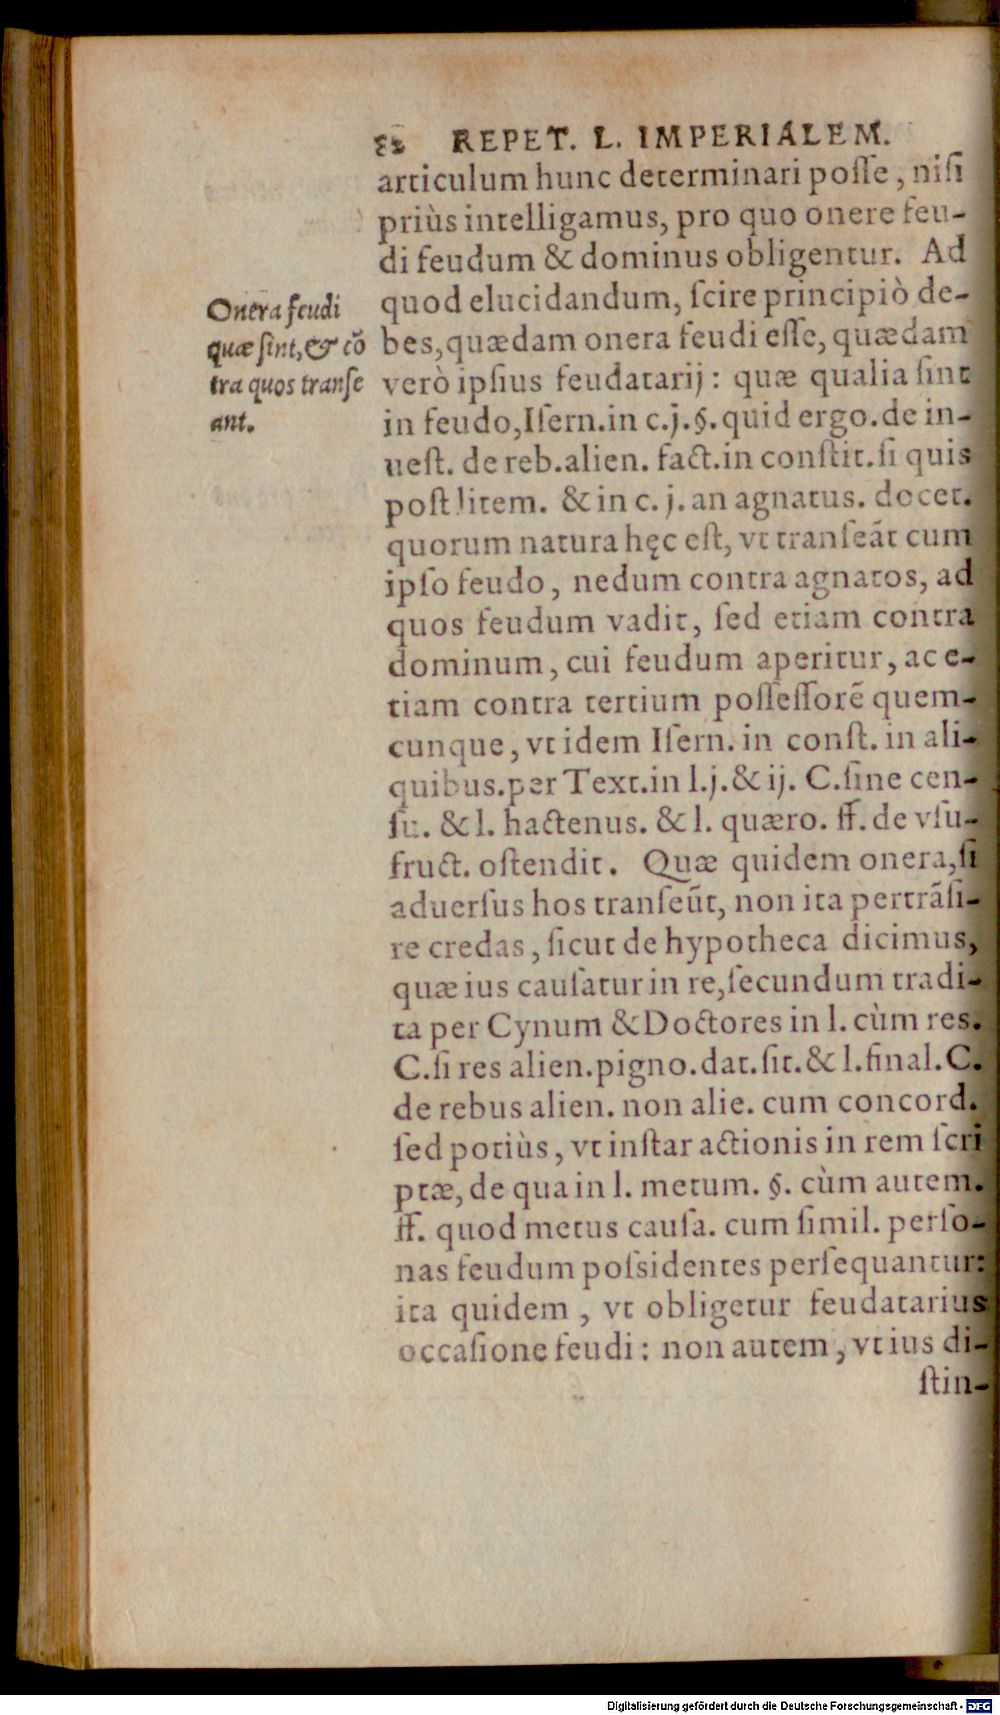 REPET. L. IMPERIALEM.
articulum hunc determinari poſſe, niſi
priùs intelligamus, pro quo onere feu-
di feudum & dominus obligentur. Ad
quod elucidandum, ſcire principiò de-
bes, quædam onera feudi eſſe, quædam
verò ipſius feudatarij: quæ qualia ſint
in feudo, Iſern. in c.j. §. quid ergo. de in-
ueſt. de reb. alien. fact. in conſtit. ſi quis
poſt litem. & in c. j. an agnatus. docet.
quorum natura hęc eſt, vt tranſeãt cum
ipſo feudo, nedum contra agnatos, ad
quos feudum vadit, ſed etiam contra
dominum, cui feudum aperitur, ac e-
tiam contra tertium poſſeſſorẽ quem-
cunque, vt idem Iſern. in conſt. in ali-
quibus. per Text. in l.j. & ij. C. ſine cen-
ſu. & l. hactenus. & l. quæro. ff. de vſu-
fruct. oſtendit. Quæ quidem onera, ſi
aduerſus hos tranſeũt, non ita pertrãſi-
re credas, ſicut de hypotheca dicimus,
quæ ius cauſatur in re, ſecundum tradi-
ta per Cynum & Doctores in l. cùm res.
C. ſi res alien. pigno. dat. ſit. & l. final. C.
de rebus alien. non alie. cum concord.
ſed potiùs, vt inſtar actionis in rem ſcri
ptæ, de qua in l. metum. §. cùm autem.
ff. quod metus cauſa. cum ſimil. perſo-
nas feudum poſsidentes perſequantur:
ita quidem, vt obligetur feudatarius
occaſione feudi: non autem, vt ius di-
ſtin-
Onera feudi
quæ ſint, & cõ
tra quos tranſe
ant.
Digitalisierung gefördert durch die Deutsche Forschungsgemeinschaft - DFG